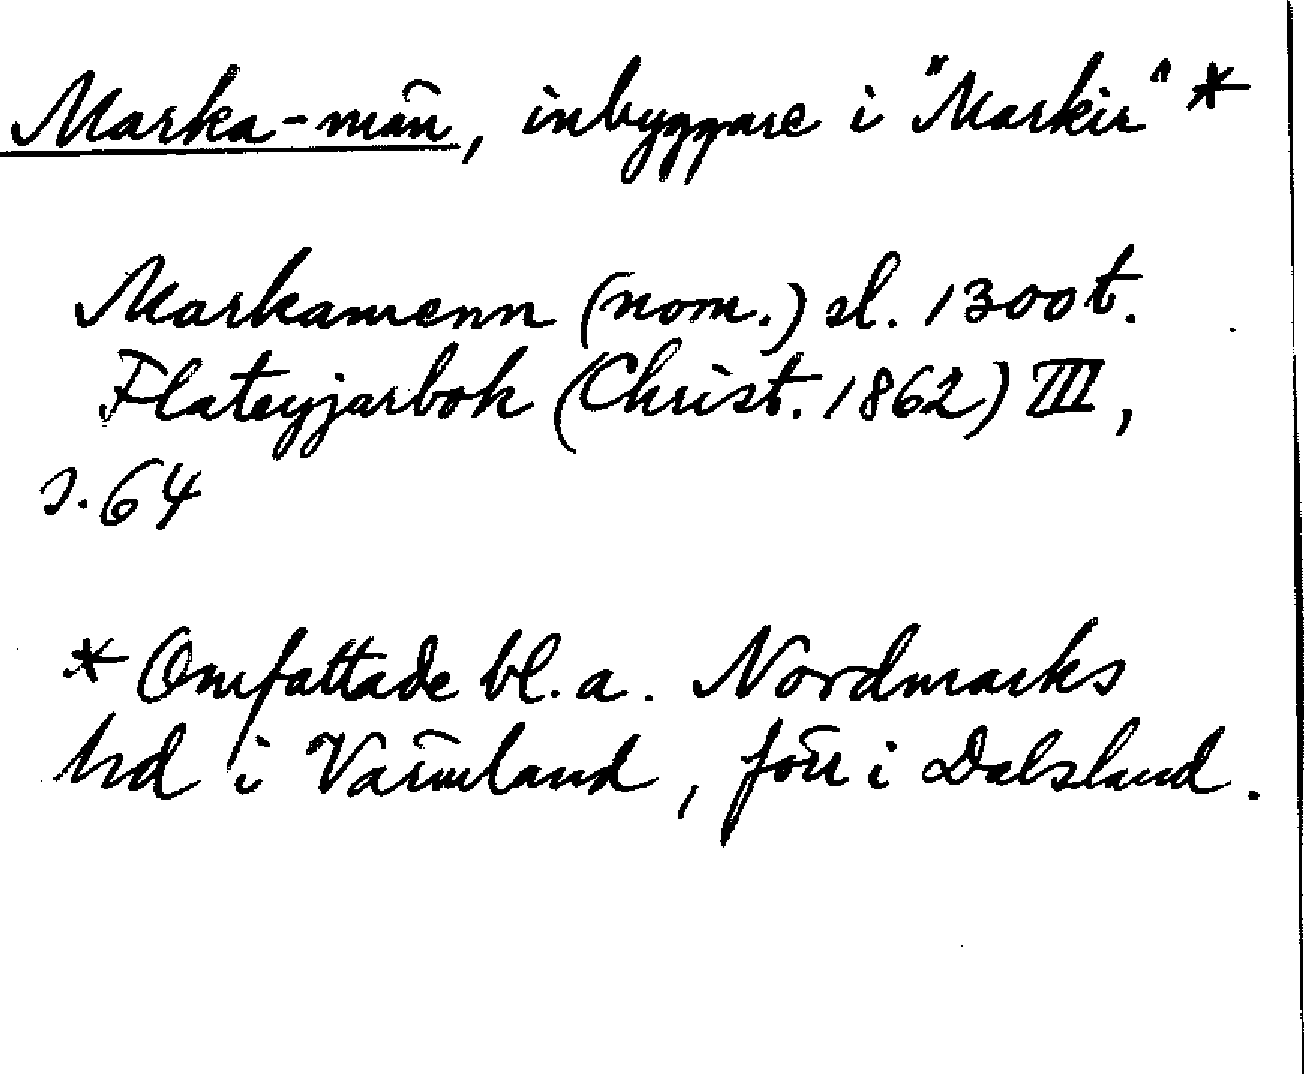 Marka-män, inbyggare i "Markir" *
Markamenn (nom.) sl. 1300t.
Flateyjarbok (Christ. 1862) III,
s. 64
* Omfattade bl. a. Nordmarks
hd i Värmland, förr i Dalsland.